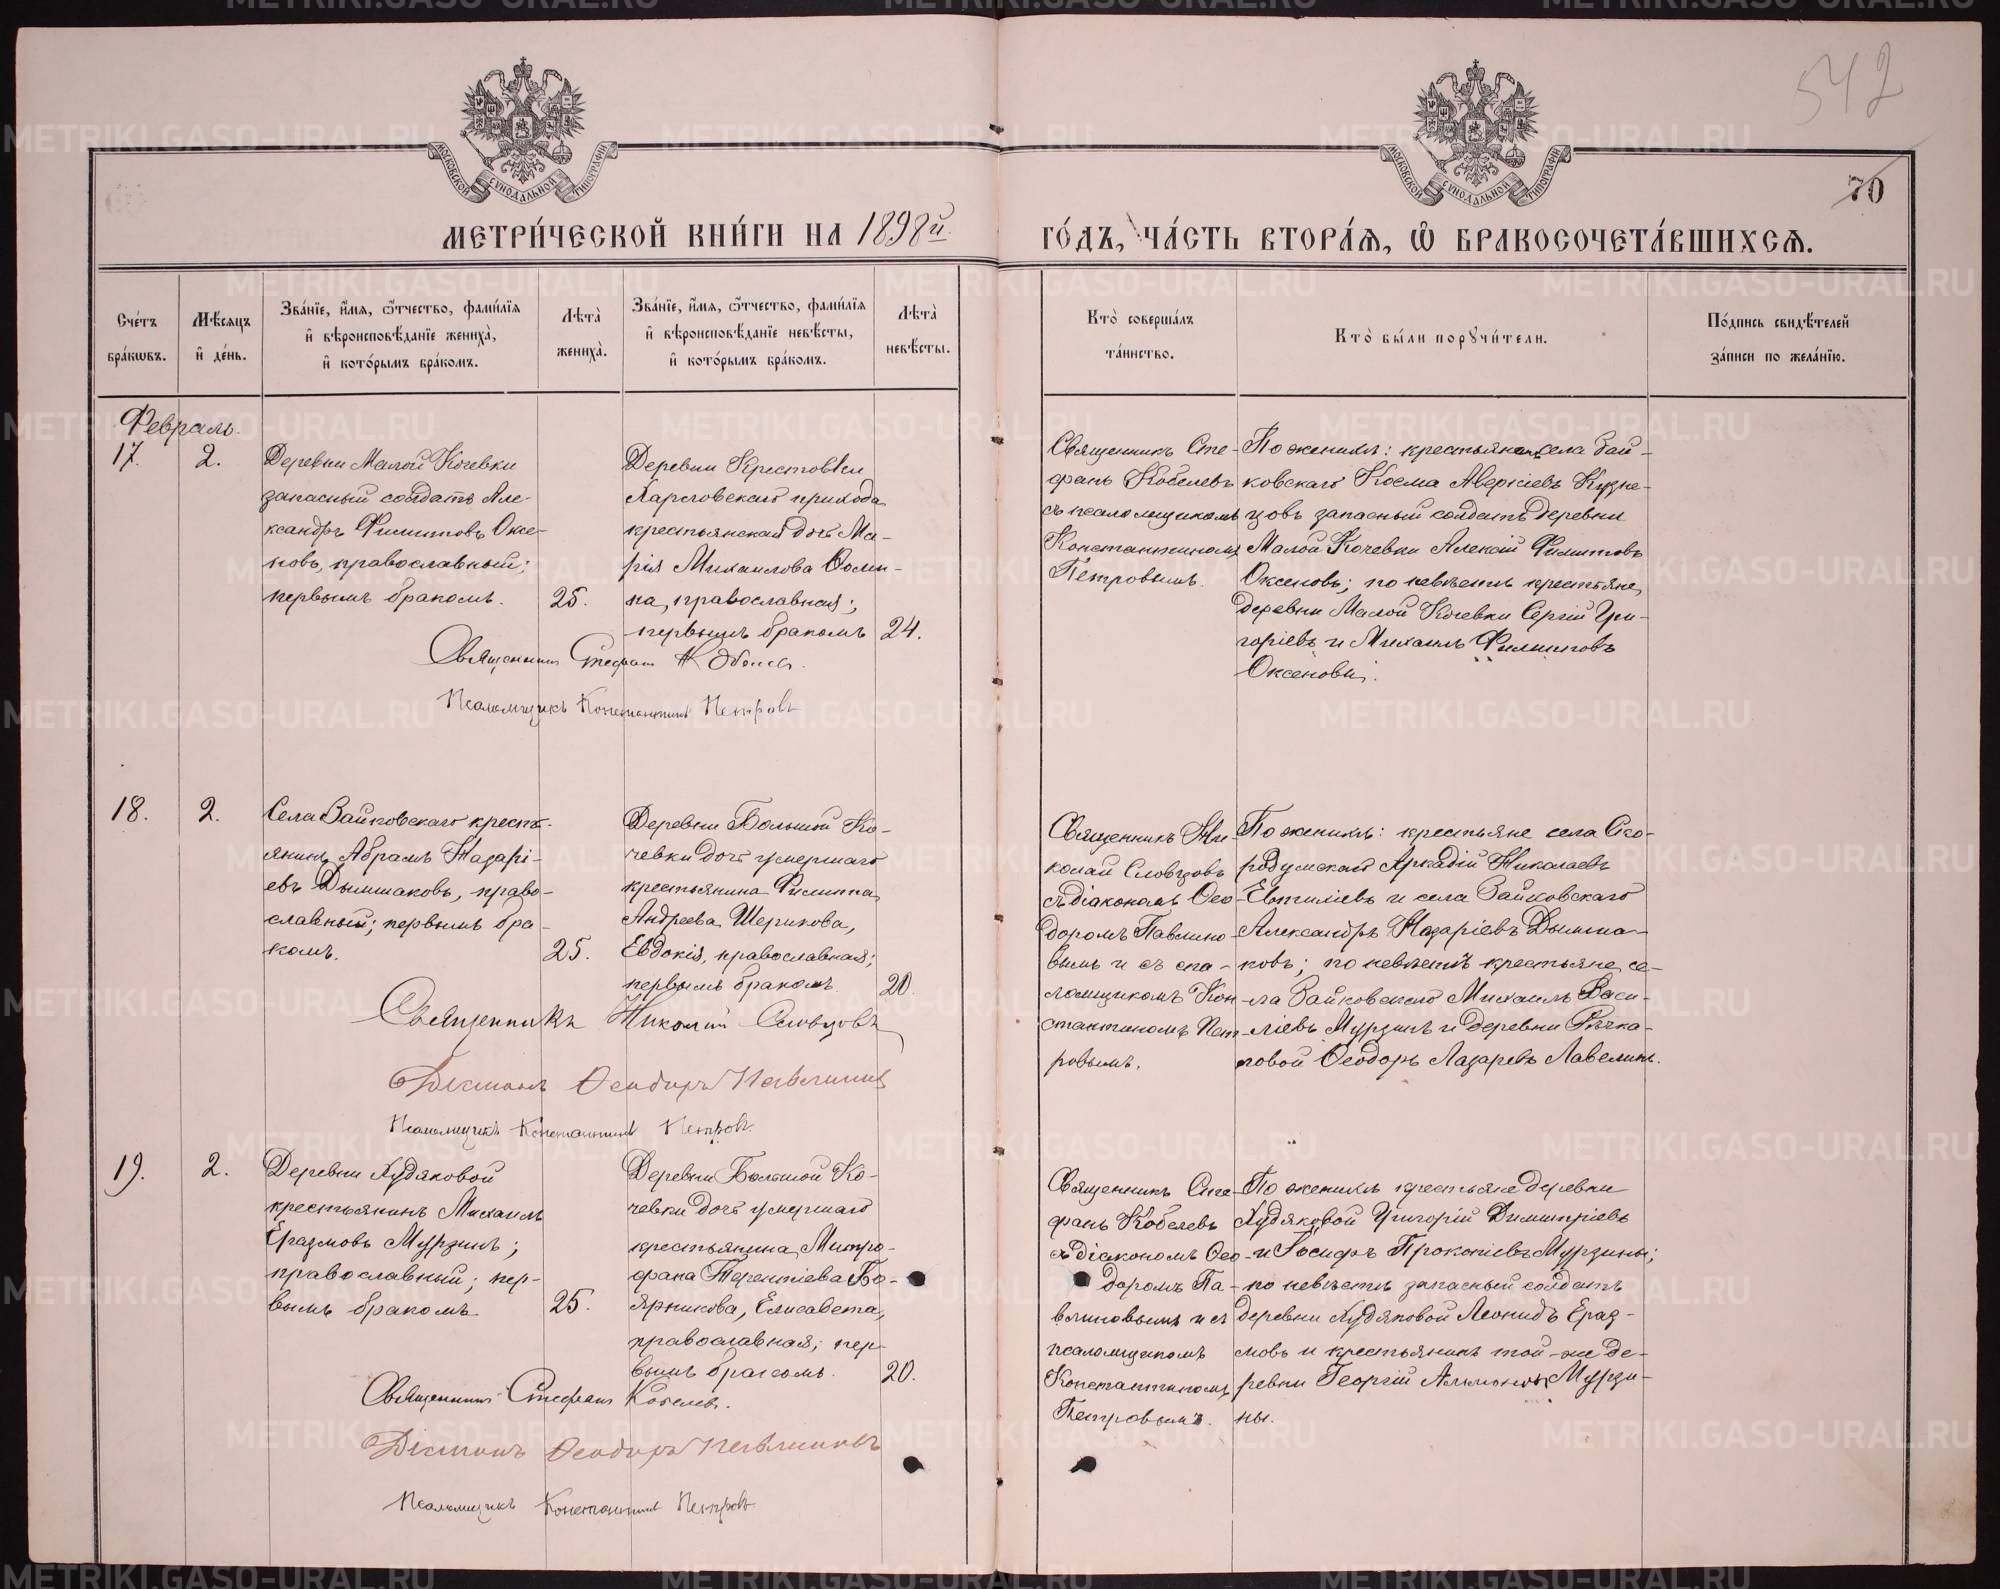 542
МОСКОВСКОЙ СУНОДАЛЬНОЙ ТИПОГРАФІИ
МОСКОВСКОЙ СУНОДАЛЬНОЙ ТИПОГРАФІИ
70
МЕТРИ́ЧЕСКОЙ КНИ́ГИ НА 1898й.
ГО́ДЪ, ЧА́СТЬ ВТОРА́Я, Ѡ БРАКОСОЧЕТА́ВШИХСѦ.
Сче́тъ
бра́кѡвъ.
Мѣ́сяцъ
и҆ де́нь.
Зва́нїе, и҆́мѧ, ѻ҆́тчество, фами́лїѧ
и҆ вѣроисповѣ́данїе жениха̀,
и҆ кото́рымъ бра́комъ.
Лѣта̀
жениха̀.
Зва́нїе, и҆́мѧ, ѻ҆́тчество, фами́лїѧ
и҆ вѣроисповѣ́данїе невѣ́сты,
и҆ кото́рымъ бра́комъ.
Лѣта̀
невѣ́сты.
Кто̀ соверша́лъ
та́инство.
Кто̀ бы́ли порꙋчи́тели.
По́дпись свидѣ́телей
за́писи по жела́нїю.
Февраль.
17.
2.
Деревни Малой Кочевки
запасный солдатъ Але-
ксандръ Филиповъ Оксе-
новъ, православный;
первымъ бракомъ.
25.
Деревни Крестовки
Харловскаго прихода
крестьянская дочь Ма-
рія Михаилова Ѳоми-
на, православная;
первымъ бракомъ
24.
Священникъ Сте-
фанъ Кобелевъ
съ псаломщикомъ
Константиномъ
Петровымъ.
По женихѣ: крестьянинъ села Зай-
ковскаго Косма Аверкіевъ Кузне-
цовъ запасный солдатъ деревни
Малой Кочевки Алексій Филиповъ
Оксеновъ; по невѣстѣ крестьяне
деревни Малой Кочевки Сергій Гри-
горіевъ и Михаилъ Филиповъ
Оксеновы.
Священникъ Стефанъ Кобелевъ.
Псаломщикъ Константинъ Петровъ
18.
2.
Села Зайковскаго кресть-
янинъ Абрамъ Назарі-
евъ Дымшаковъ, право-
славный; первымъ бра-
комъ.
25.
Деревни Большой Ко-
чевки дочь умершаго
крестьянина Филиппа
Андреева Шерикова,
Евдокія, православная;
первымъ бракомъ
20.
Священникъ Ни-
колай Словцовъ
съ діакономъ Ѳео-
доромъ Павлино-
вымъ и съ пса-
ломщикомъ Кон-
стантиномъ Пет-
ровымъ.
По женихѣ: крестьяне села Ско-
родумскаго Аркадій Николаевъ
Евтиліевъ и села Зайковскаго
Александръ Назаріевъ Дымша-
ковъ; по невѣстѣ крестьяне се-
ла Зайковскаго Михаилъ Васи-
ліевъ Мурзинъ и деревни Речка-
ловой Ѳеодоръ Лазаревъ Лавелинъ.
Священникъ Николай Словцовъ
Діаконъ Ѳеодоръ Павлиновъ
Псаломщикъ Константинъ Петровъ.
19.
2.
Деревни Худяковой
крестьянинъ Михаилъ
Еразмовъ Мурзинъ;
православный; пер-
вымъ бракомъ
25.
Деревни Большой Ко-
чевки дочь умершаго
крестьянина Митро-
фана Терентіева Бо-
ярникова, Елисавета,
православная; пер-
вымъ бракомъ.
20.
Священникъ Сте-
фанъ Кобелевъ
съ діакономъ Ѳео-
доромъ Па-
влиновымъ и съ
псаломщикомъ
Константиномъ
Петровымъ.
По женихѣ крестьяне деревни
Худяковой Григорій Димитріевъ
и Іосифъ Прокопіевъ Мурзины;
по невѣстѣ запасный солдатъ
деревни Худяковой Леонидъ Ераз-
мовъ и крестьянинъ той-же де-
ревни Георгій Мурзи-
ны.
Священникъ Стефанъ Кобелевъ.
Діаконъ Ѳеодоръ Павлиновъ
Псаломщикъ Константинъ Петровъ
METRIKI.GASO-URAL.RU